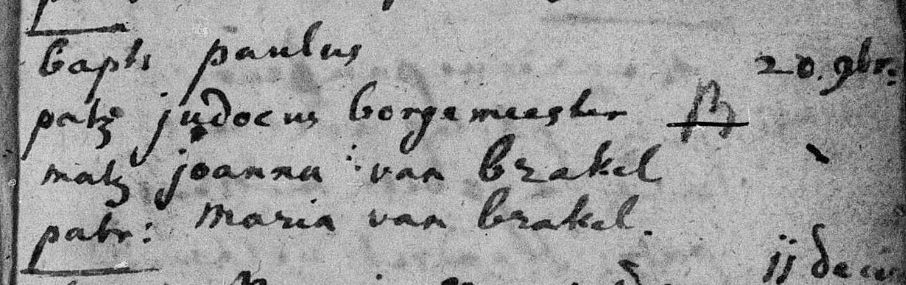 bapts paulus 20. 9br:
patr judocus borgemeester
matr joanna van brakel
patr: maria van brakel.
jj decem